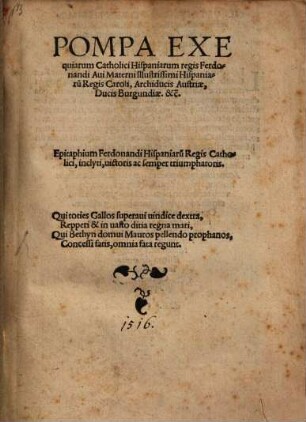 POMPA EXE
quiarum Catholici Hispaniarum regis Ferdo-
nandi Aui Materni Illustrissimi Hispania-
rū Regis Caroli, Archiducis Austriæ,
Ducis Burgundiæ. &c̄.
Epitaphium Ferdonandi Hispaniarū Regis Catho-
lici, inclyti, uictoris ac semper triumphatoris.
Qui toties Gallos superaui uindice dextra,
Repperi & in uasto ditia regna mari,
Qui Bethyn domui Mauros pellendo prophanos,
Concessi fatis, omnia fata regunt.
1516.